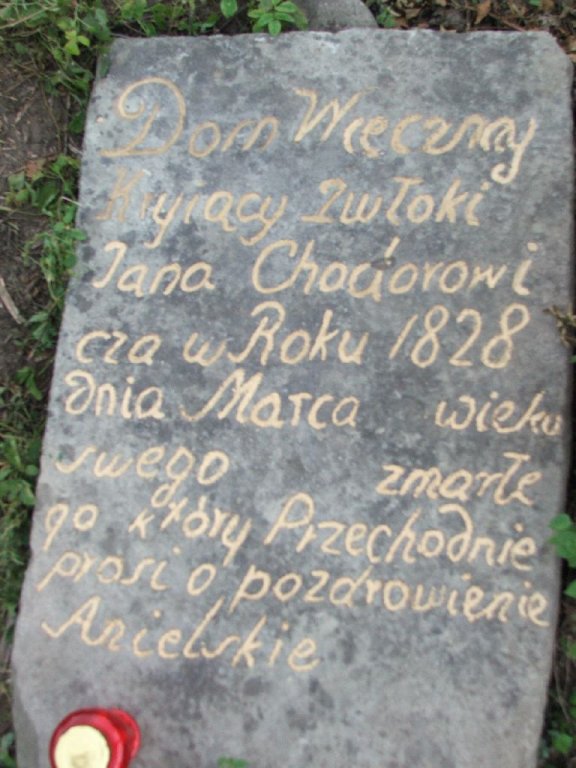 Dom Więczny
Kryiący Zwłoki
Jana Chodorowi
cza w Roku 1828
dnia Marca wieku
swego zmarłe
go który Przechodnie
prosi o pozdrowięnie
Anielskie